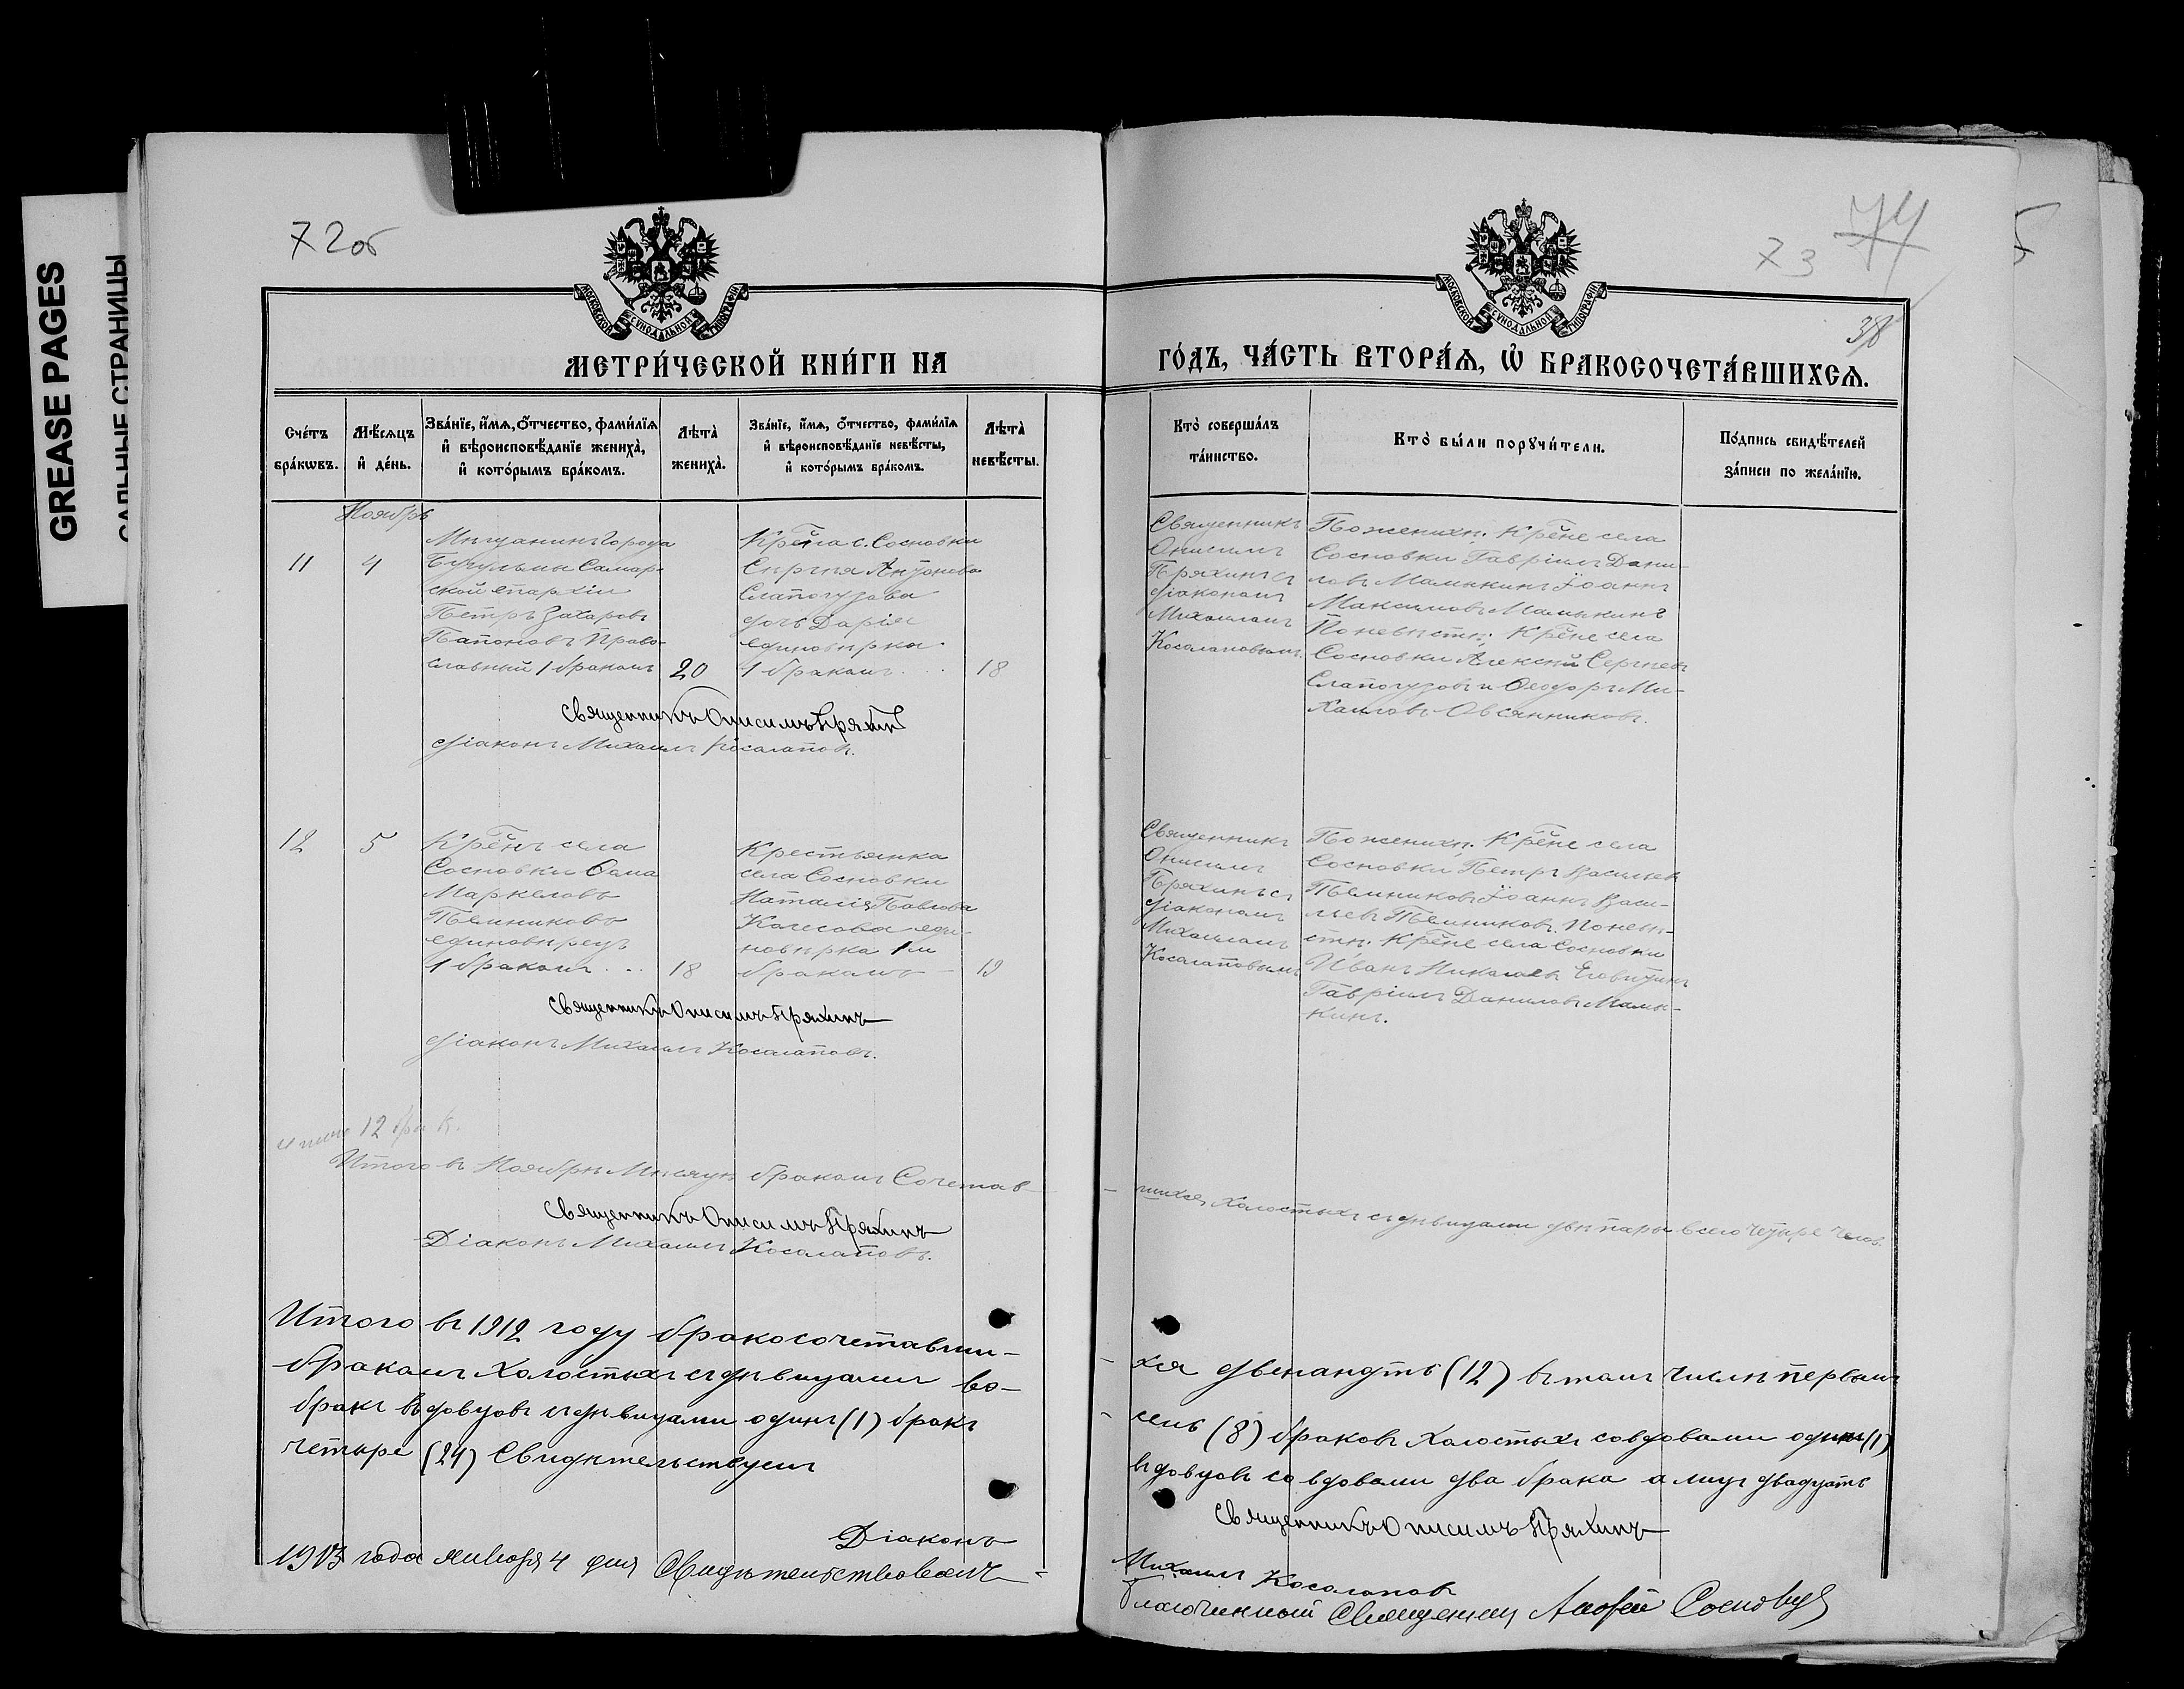 GREASE PAGES
САЛЬНЫЕ СТРАНИЦЫ
72об
МОСКОВСКОЙ СѴНОДАЛЬНОЙ ТИПОГРАФІИ
МЕТРИ́ЧЕСКОЙ КНИ́ГИ НА
Сче́тъ бра́кѡвъ.
Мѣ́сѧцъ и҆ де́нь.
Зва́нїе, и҆́мѧ, ѻ҆́тчество, фами́лїѧ и҆ вѣроисповѣ́данїе жениха̀, и҆ кото́рымъ бра́комъ.
Лѣта̀ жениха̀.
Зва́нїе, и҆́мѧ, ѻ҆́тчество, фами́лїѧ и҆ вѣроисповѣ́данїе невѣ́сты, и҆ кото́рымъ бра́комъ.
Лѣта̀ невѣ́сты.
Ноябрь
11
4
Мѣщанинъ города
Бугульмы Самар-
ской епархіи
Петръ Захаровъ
Папоновъ Право-
славный 1 бракомъ
20
Кр҃на с. Сосновки
Сергѣя Антонова
Слапогузова
дочь Дарія
единовѣрка
1 бракомъ
18
Священникъ Онисимъ Пряхинъ
Діаконъ Михаилъ Косолаповъ.
12
5
Кр҃нъ села
Сосновки Ѳома
Маркеловъ
Темниковъ
единовѣрецъ
1 бракомъ
18
Крестьянка
села Сосновки
Наталія Павлова
Колесова еди-
новѣрка 1м
бракомъ
19
Священникъ Онисимъ Пряхинъ
Діаконъ Михаилъ Косолаповъ.
Итого 12 брак.
Итого въ Ноябрѣ Мѣсяцѣ бракомъ Сочетав-
Священникъ Онисимъ Пряхинъ
Діаконъ Михаилъ Косолаповъ.
Итого въ 1912 году бракосочетавши-
бракомъ холостыхъ съ дѣвицами во-
бракъ вдовцовъ съ дѣвицами одинъ (1) бракъ
четыре (24) Свидѣтельствуемъ
Діаконъ
1913 года января 4 дня Свидѣтельствовалъ
73
74
38
МОСКОВСКОЙ СѴНОДАЛЬНОЙ ТИПОГРАФІИ
ГО́ДЪ, ЧА́СТЬ ВТОРА́Ѧ, Ѽ БРАКОСОЧЕТА́ВШИХСѦ.
Кто̀ соверша́лъ та́инство.
Кто̀ бы́ли порꙋчи́тели.
По́дпись свидѣ́телей за́писи по жела́нїю.
Священникъ
Онисимъ
Пряхинъ съ
діакономъ
Михаиломъ
Косолаповымъ.
По женихѣ: Кр҃не села
Сосновки Гавріилъ Дани-
ловъ Малыкинъ Іоаннъ
Максимовъ Малыкинъ
По невѣстѣ: Кр҃не села
Сосновки Алексѣй Сергѣевъ
Слапогузовъ и Ѳеодоръ Ми-
хаиловъ Овсянниковъ.
Священникъ
Онисимъ
Пряхинъ съ
діакономъ
Михаиломъ
Косолаповымъ
По женихѣ: Кр҃не села
Сосновки Петръ Васильевъ
Темниковъ Іоаннъ Васи-
льевъ Темниковъ. По невѣ-
стѣ: Кр҃не села Сосновки
Иванъ Николаевъ
Гавріилъ Даниловъ Малы-
кинъ.
шихся, холостыхъ съ дѣвицами двѣ пары всего четыре челов.
хся двенандть (12) въ томъ числѣ первымъ
семь (8) браковъ холостыхъ со вдовами одинъ (1)
вдовцовъ со вдовами два брака а лицъ двадцать
Священникъ Онисимъ Пряхинъ
Михаилъ Косолаповъ
Благочинный Священник